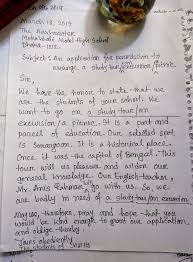 March 18, 2019
The Headmaster
Model High School
Dhaka-
Subject: An application for permission to
arrange a study tour/excursion/picnic.
Sir,
We have the honour to state that we
are the students of your school. We
want to go on a study tour/an
excursion/a picnic. It is a part and
parcel of education. Our selected spot
is Sonargaon. It is a historical place.
Once it was the capital of Bengal. This
tour will us pleasure and widen our
general knowledge. Our English teacher,
Mr. Anis Rahman go with us. So, we
are badly in need of a study tour/an excursion
May we, therefore, pray and hope that you
would be kind enough to grant our application
and oblige thereby.
Yours obediently
The students of